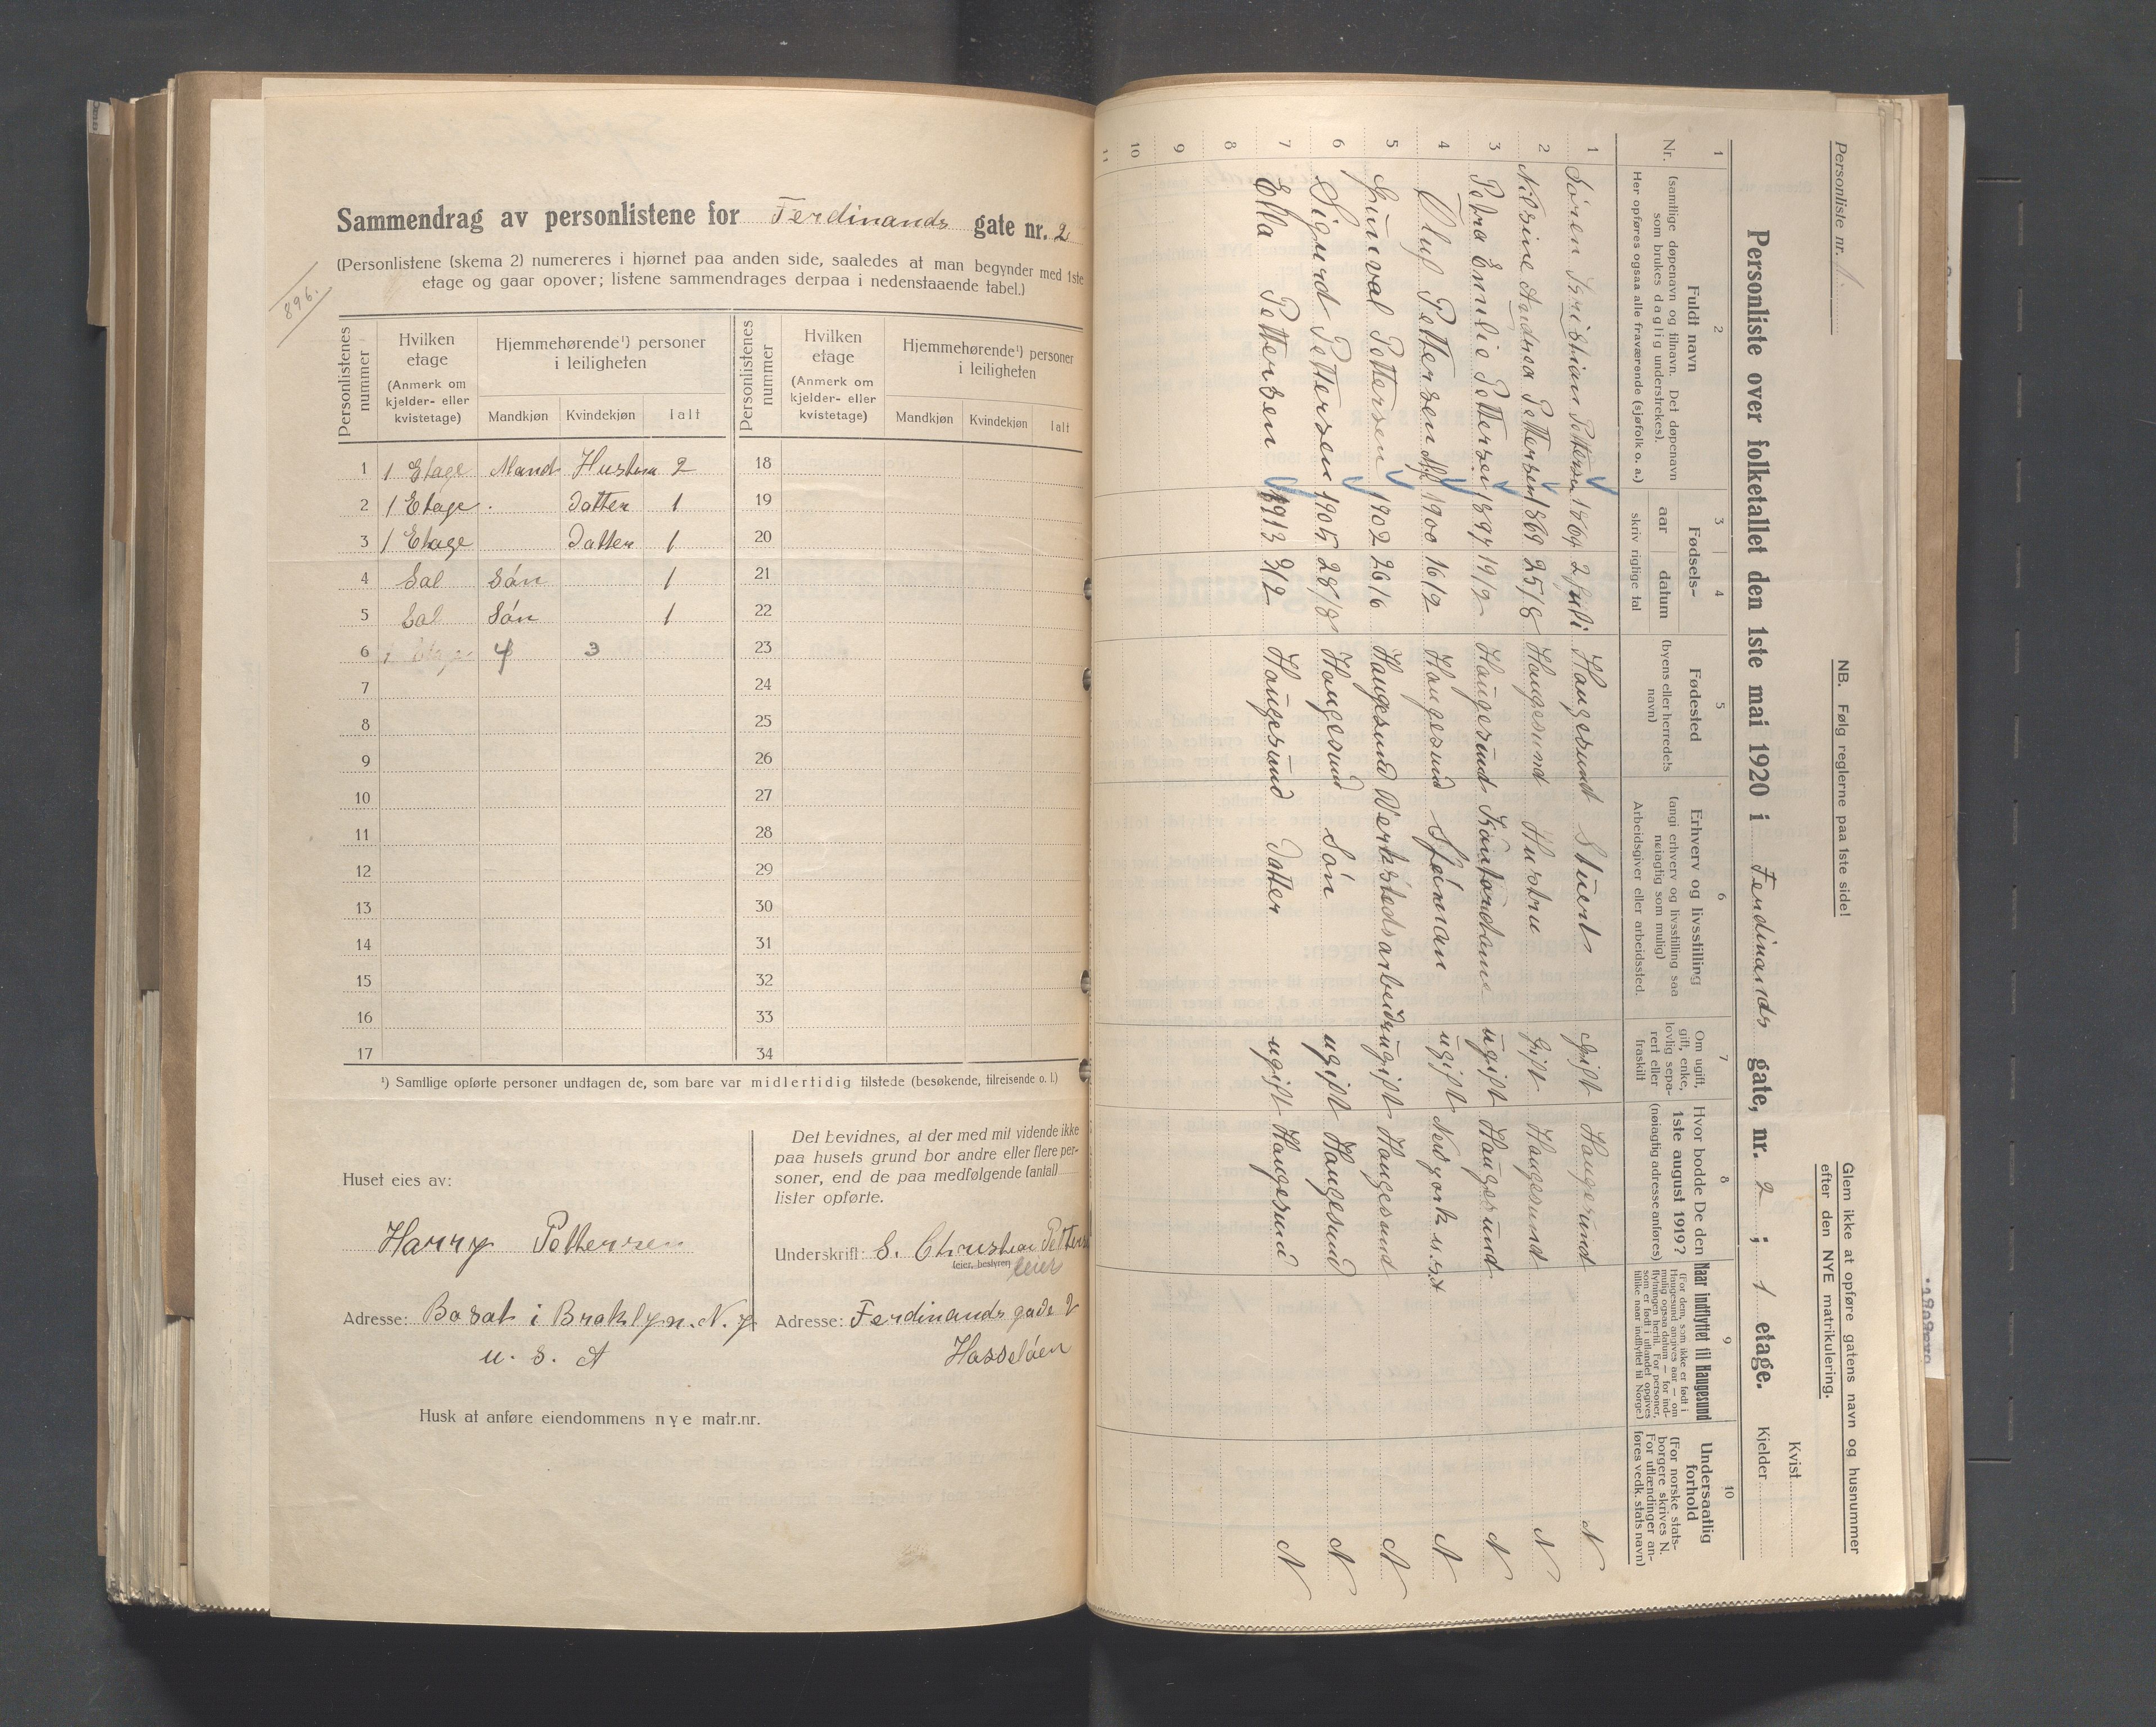 896.
Sammendrag av personlistene for Ferdinands gate nr. 2
(Personlistene (skema 2) numereres i hjørnet paa anden side, saaledes at man begynder med 1ste
etage og gaar opover; listene sammendrages derpaa i nedenstaaende tabel.)
Personlistenes nummer | Hvilken etage (Anmerk om kjelder- eller kvistetage) | Hjemmehørende¹) personer i leiligheten | Mandkjøn | Kvindekjøn | Ialt
Personlistenes nummer | Hvilken etage (Anmerk om kjelder- eller kvistetage) | Hjemmehørende¹) personer i leiligheten | Mandkjøn | Kvindekjøn | Ialt
1 1 Etage Mand Hustru 2 18
2 1 Etage . Datter 1 19
3 1 Etage Datter 1 20
4 Sal Sön 1 21
5 Sal Sön 1 22
6 1 Etage 4 3 23
7 24
8 25
9 26
10 27
11 28
12 29
13 30
14 31
15 32
16 33
17 34
¹) Samtlige opførte personer undtagen de, som bare var midlertidig tilstede (besøkende, tilreisende o. l.)
Huset eies av:
Harry Pettersen
Adresse: Bosat i Broklyn. N. y
U. S. A
Det bevidnes, at der med mit vidende ikke
paa husets grund bor andre eller flere per-
soner, end de paa medfølgende (antal)
lister opførte.
Underskrift: S. Christian Petters
(eier, bestyrer)
eier
Adresse: Ferdinands gade 2
Hasselöen
Husk at anføre eiendommens nye matr.nr.
Personliste nr. 1.
NB. Følg reglerne paa 1ste side!
Glem ikke at opføre gatens navn og husnummer
efter den NYE matrikulering.
Personliste over folketallet den 1ste mai 1920 i Ferdinands gate, nr. 2 ; 1 etage.
Kvist
Kjelder
1 | 2 | 3 | 4 | 5 | 6 | 7 | 8 | 9 | 10
Nr.
Fuldt navn
(samtlige døpenavn og tilnavn. Det døpenavn
som brukes daglig understrekes).
Her opføres ogsaa alle fraværende (sjøfolk o. a.)
Fødsels-
aar | datum
skriv riglige tal
Fødested
(byens eller herredets
navn)
Erhverv og livsstilling
(angi erhverv og livsstilling saa
nøiagtig som mulig)
Arbeidsgiver eller arbeidssted.
Om ugift,
gift, enke,
lovlig sepa-
rert eller
fraskilt
Hvor bodde De den
1ste august 1919?
(nøiagtig adresse anføres)
Naar indflyttet til Haugesund
(For dem, som ikke er født i
Haugesund angives aar — om
mulig ogsaa datum — for ind-
flytningen hertil. For personer,
som er født i utlandet opgives
tillike naar indflyttet til Norge.)
Undersaatlig
forhold
(For norske stats-
borgere skrives N.
For utlændinger an-
føres vedk. stats navn)
1 Sören Kristian Pettersen 1864 2 juli Haugesund Stuert gift Haugesund N
2 Nilsine Andrea Pettersen 1869 25/8 Haugesund Hustru gift Haugesund N
3 Petra Emilie Pettersen 1897 19/2 Haugesund Kontordame ugift Haugesund N
4 Oluf Pettersen 1900 16/2 Haugesund Sjöman ugift New york u.s.A N
5 Gunval Pettersen 1902 26/6 Haugesund Verkstedsarbeider ugift Haugesund N
6 Sigurd Pettersen 1905 28/8 Haugesund Sön ugift Haugesund N
7 Ella Pettersen 1913 3/2 Haugesund Datter ugift Haugesund N
8
9
10
11